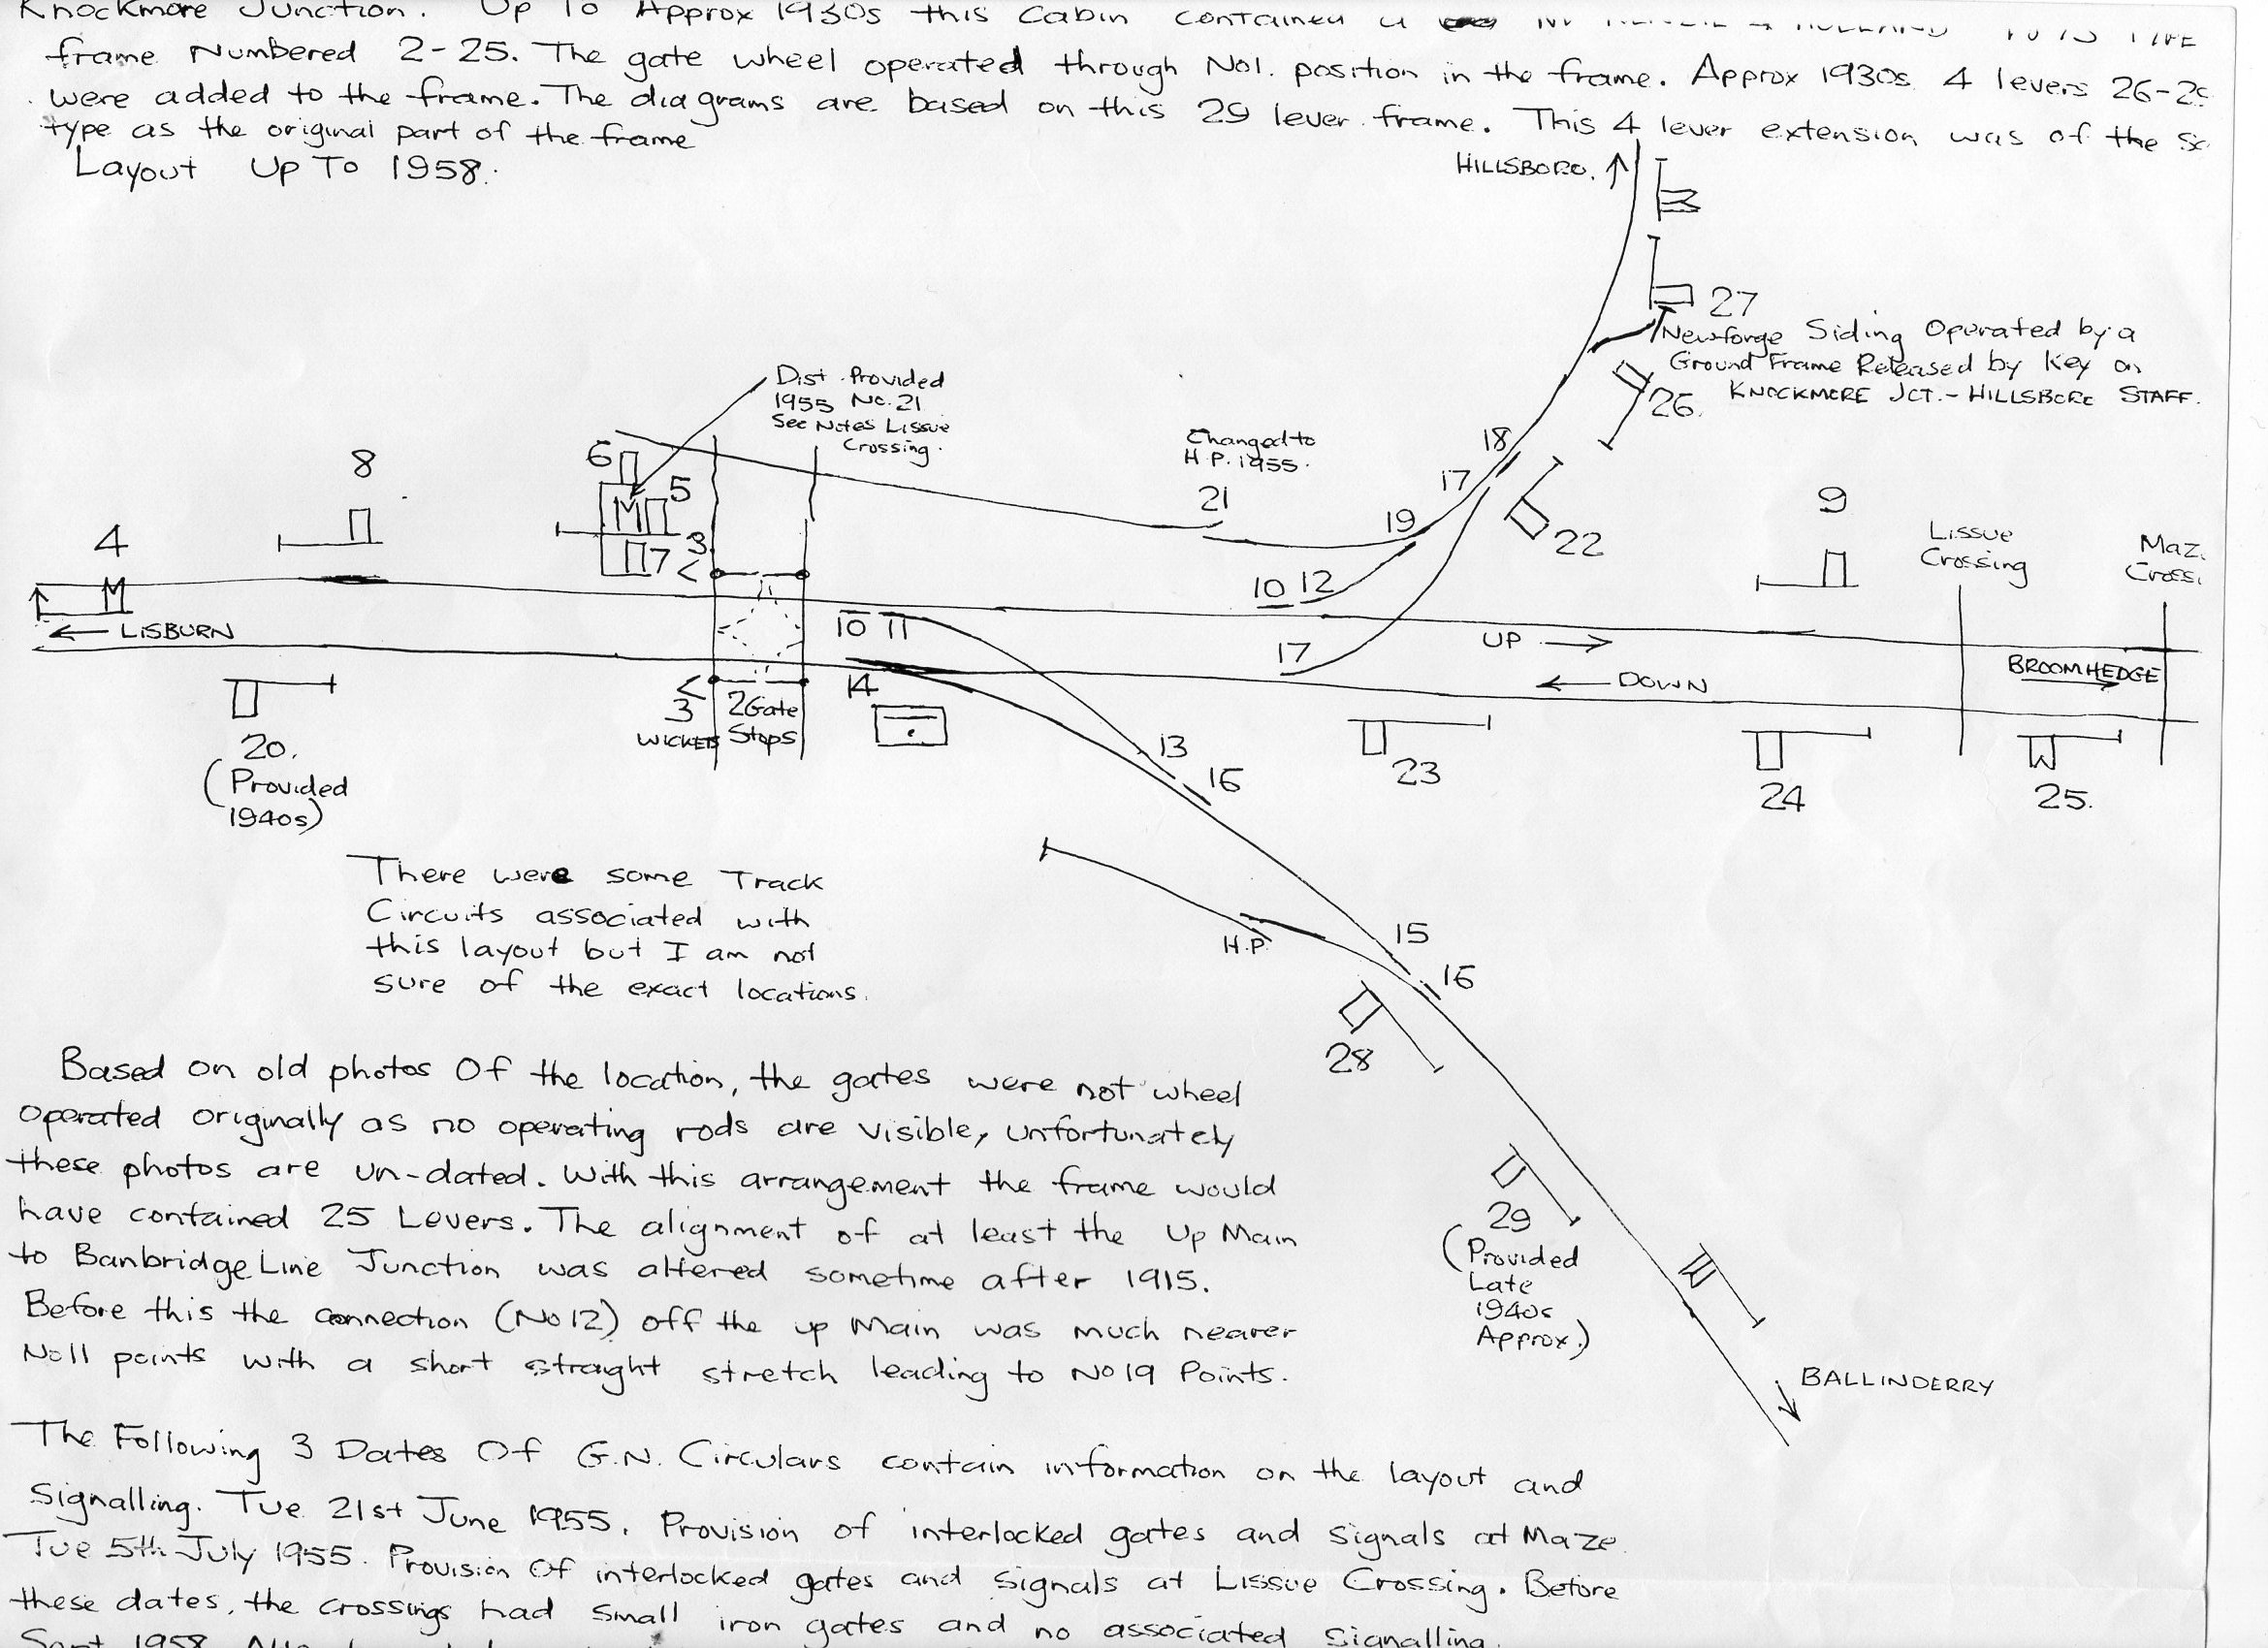 Knockmore Junction. Up To Approx 1930s this Cabin contained a
frame Numbered 2-25. The gate wheel operated through No1. position in the frame. Approx 1930s 4 levers 26-29
were added to the frame. The diagrams are based on this 29 lever frame. This 4 lever extension was of the
type as the original part of the frame
Layout Up To 1958.
HILLSBORO.
27
Newforge Siding Operated by a
Ground Frame Released by Key on
KNOCKMORE JCT. - HILLSBORO STAFF.
26.
Dist Provided
1955 No. 21
See Notes Lissue
Crossing.
Changed to
H.P. 1955.
21
18
17
19
22
8
6
5
M
7
3
4
M
9
Lissue
Crossing
Maz
Crossi
10 12
LISBURN
10 11
17
UP
DOWN
BROOMHEDGE
14
3
WICKETS
2 Gate
Stops
20.
(Provided
1940s)
13
16
23
24
25.
There were some Track
Circuits associated with
this layout but I am not
sure of the exact locations.
H.P.
15
16
28
29
(Provided
Late
1940s
Approx.)
BALLINDERRY
Based on old photos Of the location, the gates were not wheel
operated originally as no operating rods are visible, unfortunately
these photos are un-dated. With this arrangement the frame would
have contained 25 Levers. The alignment of at least the Up Main
to Banbridge Line Junction was altered sometime after 1915.
Before this the connection (No 12) off the up Main was much nearer
No11 points with a short straight stretch leading to No 19 Points.
The Following 3 Dates Of G.N. Circulars contain information on the layout and
Signalling. Tue 21st June 1955. Provision of interlocked gates and signals at Maze
Tue 5th July 1955. Provision Of interlocked gates and signals at Lissue Crossing. Before
these dates, the crossings had small iron gates and no associated signalling.
Sept 1958